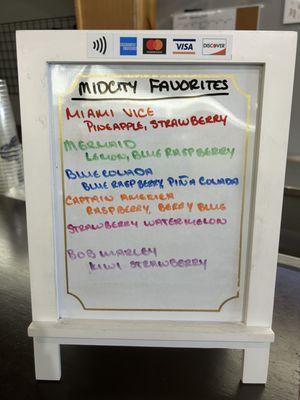 AMERICAN EXPRESS
mastercard
VISA
DISCOVER
MIDCITY FAVORITES
MIAMI VICE
PINEAPPLE, STRAWBERRY
MERMAID
LEMON, BLUE RASPBERRY
BLUE COLADA
BLUE RASPBERRY, PIÑA COLADA
CAPTAIN AMERICA
RASPBERRY, BERRY BLUE
STRAWBERRY WATERMELON
BOB MARLEY
KIWI STRAWBERRY